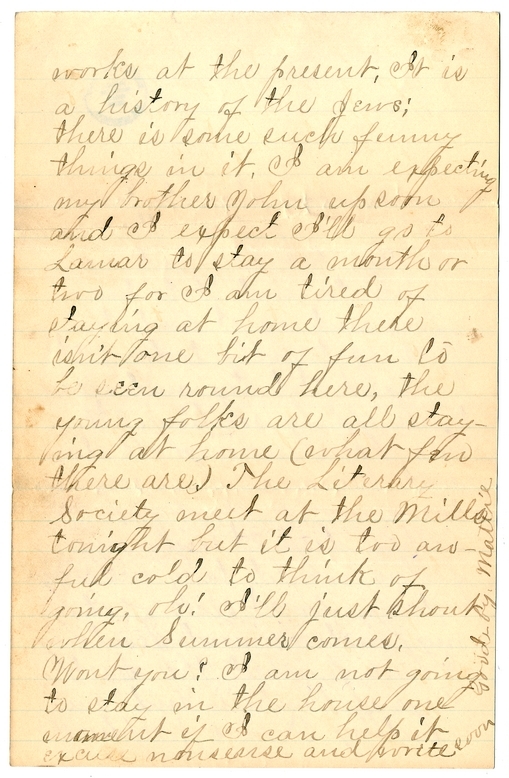 works at the present, It is
a history of the Jews;
there is some such funny
things in it. I am expecting
my brother John up soon
and I expect I'll go to
Lamar to stay a month or
two for I am tired of
staying at home there
isn't one bit of fun to
be seen round here, the
young folks are all stay-
ing at home (what few
there are) The Literary
Society meet at the Mills
tonight but it is too aw-
ful cold to think of
going, oh! I'll just shout
when Summer comes.
Wont you? I am not going
to stay in the house one
moment if I can help it
excuse nonsense and write soon
Good-by. Mattie